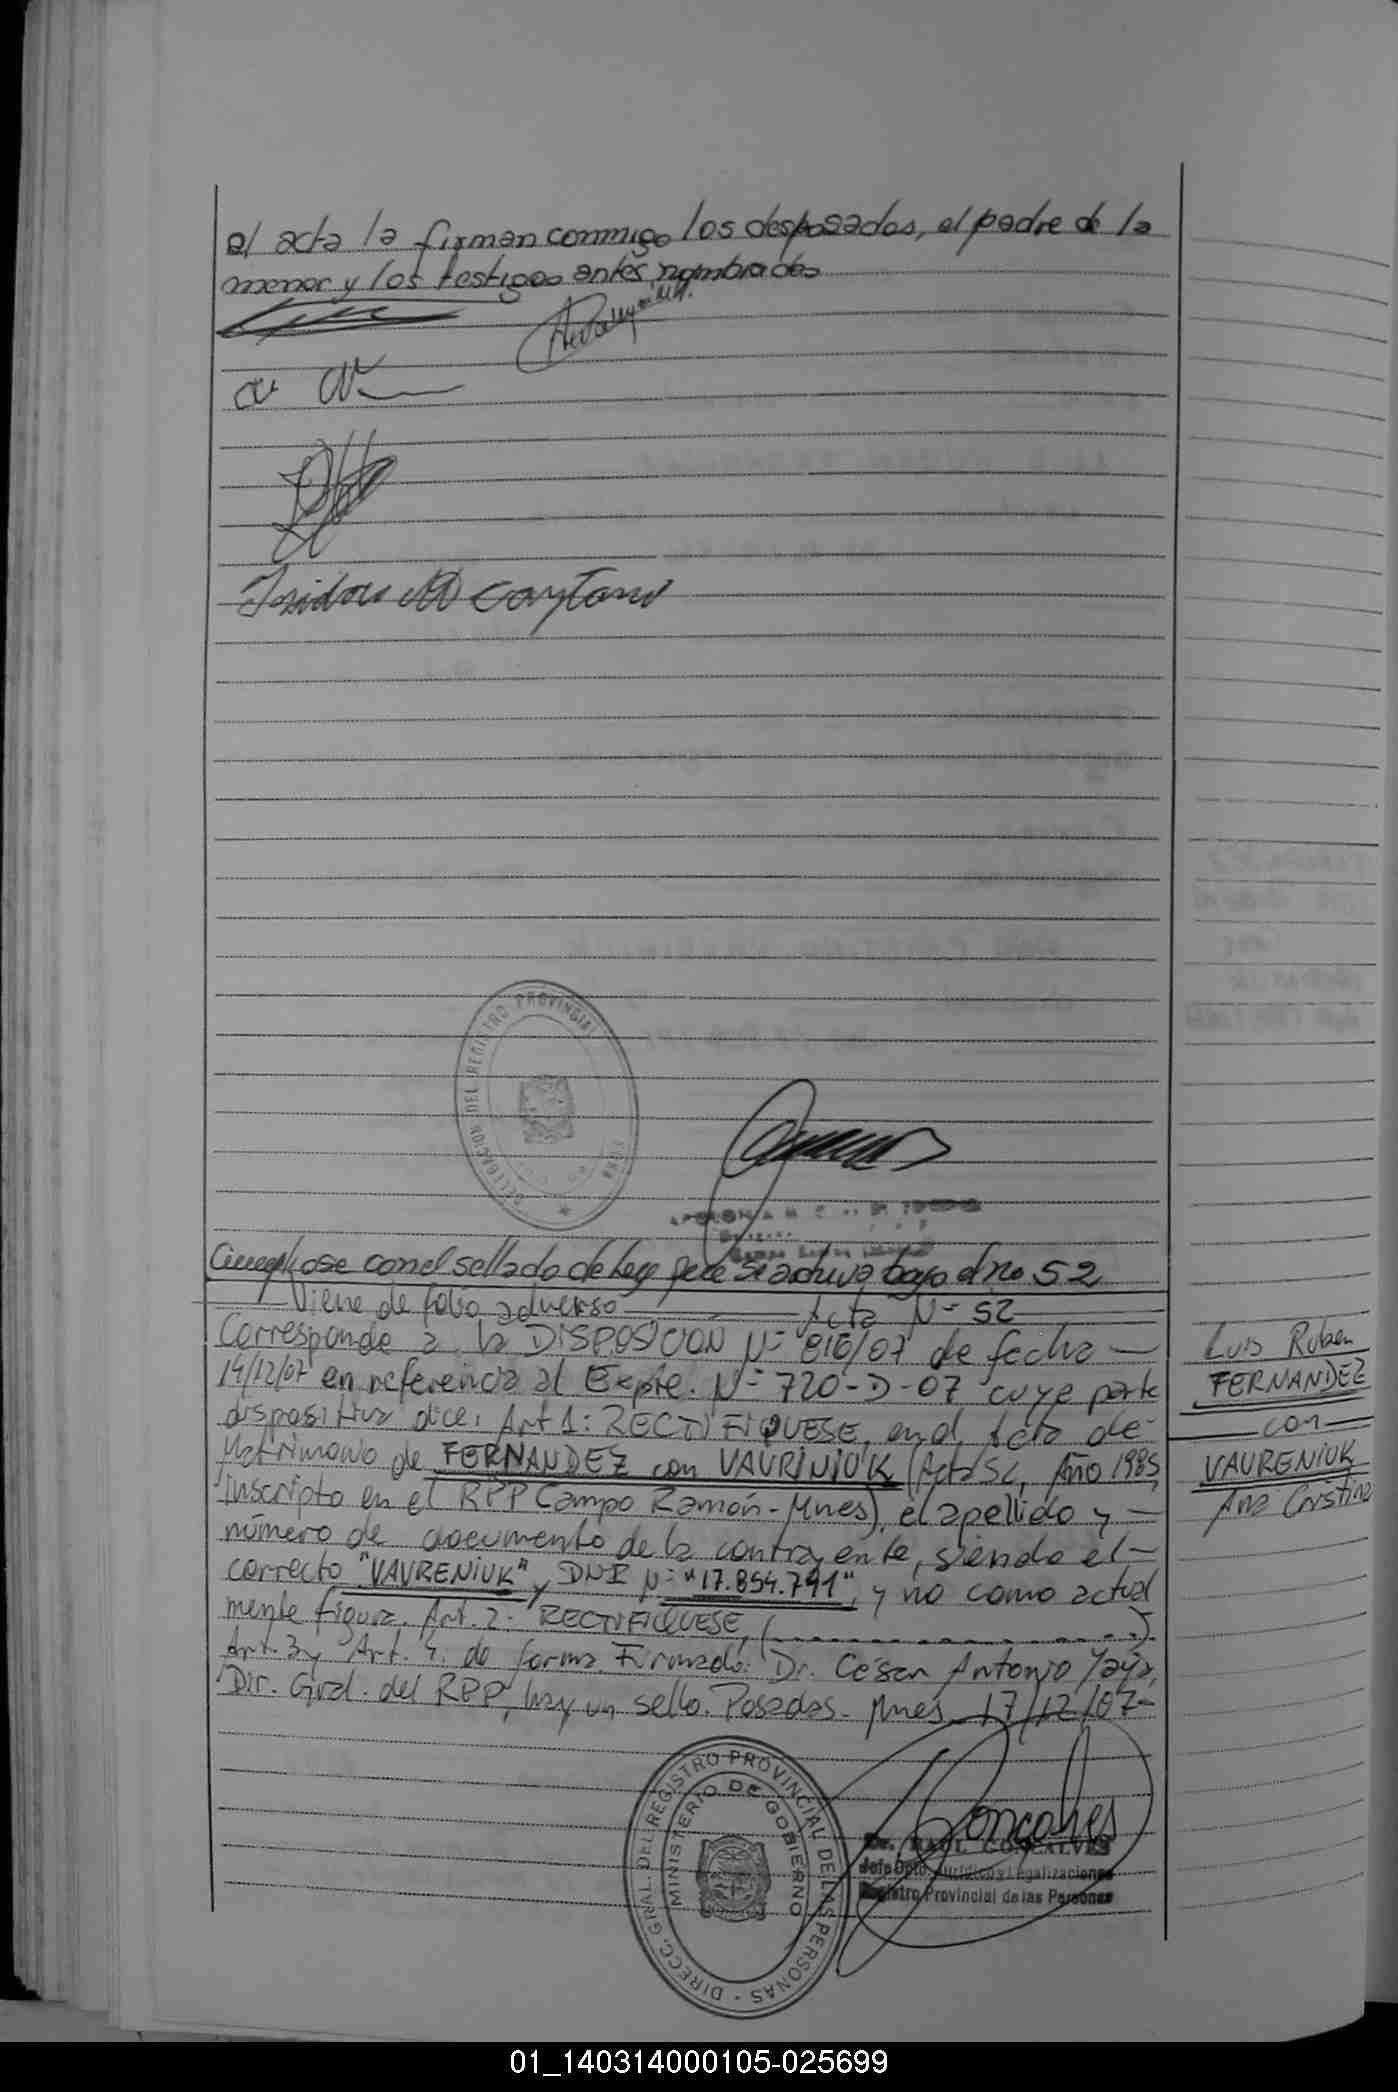 el acta la firman conmigo los desposados, el padre de la
menor y los testigos antes nombrados
Isidoro Cayetano
DELEGACION DEL REGISTRO PROVINCIAL
Cumplose con el sellado de ley que se archiva bajo el no 52
Viene de folio adverso Acta N= 52
Corresponde a la DISPOSICION N= 816/07 de fecha —
14/12/07 en referencia al Expte. N= 720-D-07 cuya parte
dispositiva dice: Art 1: RECTIFIQUESE, en el Acta de
Matrimonio de FERNANDEZ con VAURINIUK (Acta 52, Año 1985,
inscripto en el RPP Campo Ramón - Mnes), el apellido y —
número de documento de la contrayente, siendo el —
correcto "VAURENIUK", y DNI N= "17.854.791", y no como actual
mente figura. Art. 2: RECTIFIQUESE, (.............)
Art. 3 y Art. 4. de forma. Firmado: Dr. César Antonio Yaya,
Dir. Gral. del RPP, hay un sello. Posadas - Mnes. 17/12/07-
Luis Ruben
FERNANDEZ
con
VAURENIUK
Ana Cristina
DIRECC. GRAL. DEL REGISTRO PROVINCIAL DE LAS PERSONAS -
MINISTERIO DE GOBIERNO
Goncalves
Dr. RAUL GONCALVES
Jefe Dpto. Jurídico y Legalizaciones
Registro Provincial de las Personas
01_140314000105-025699